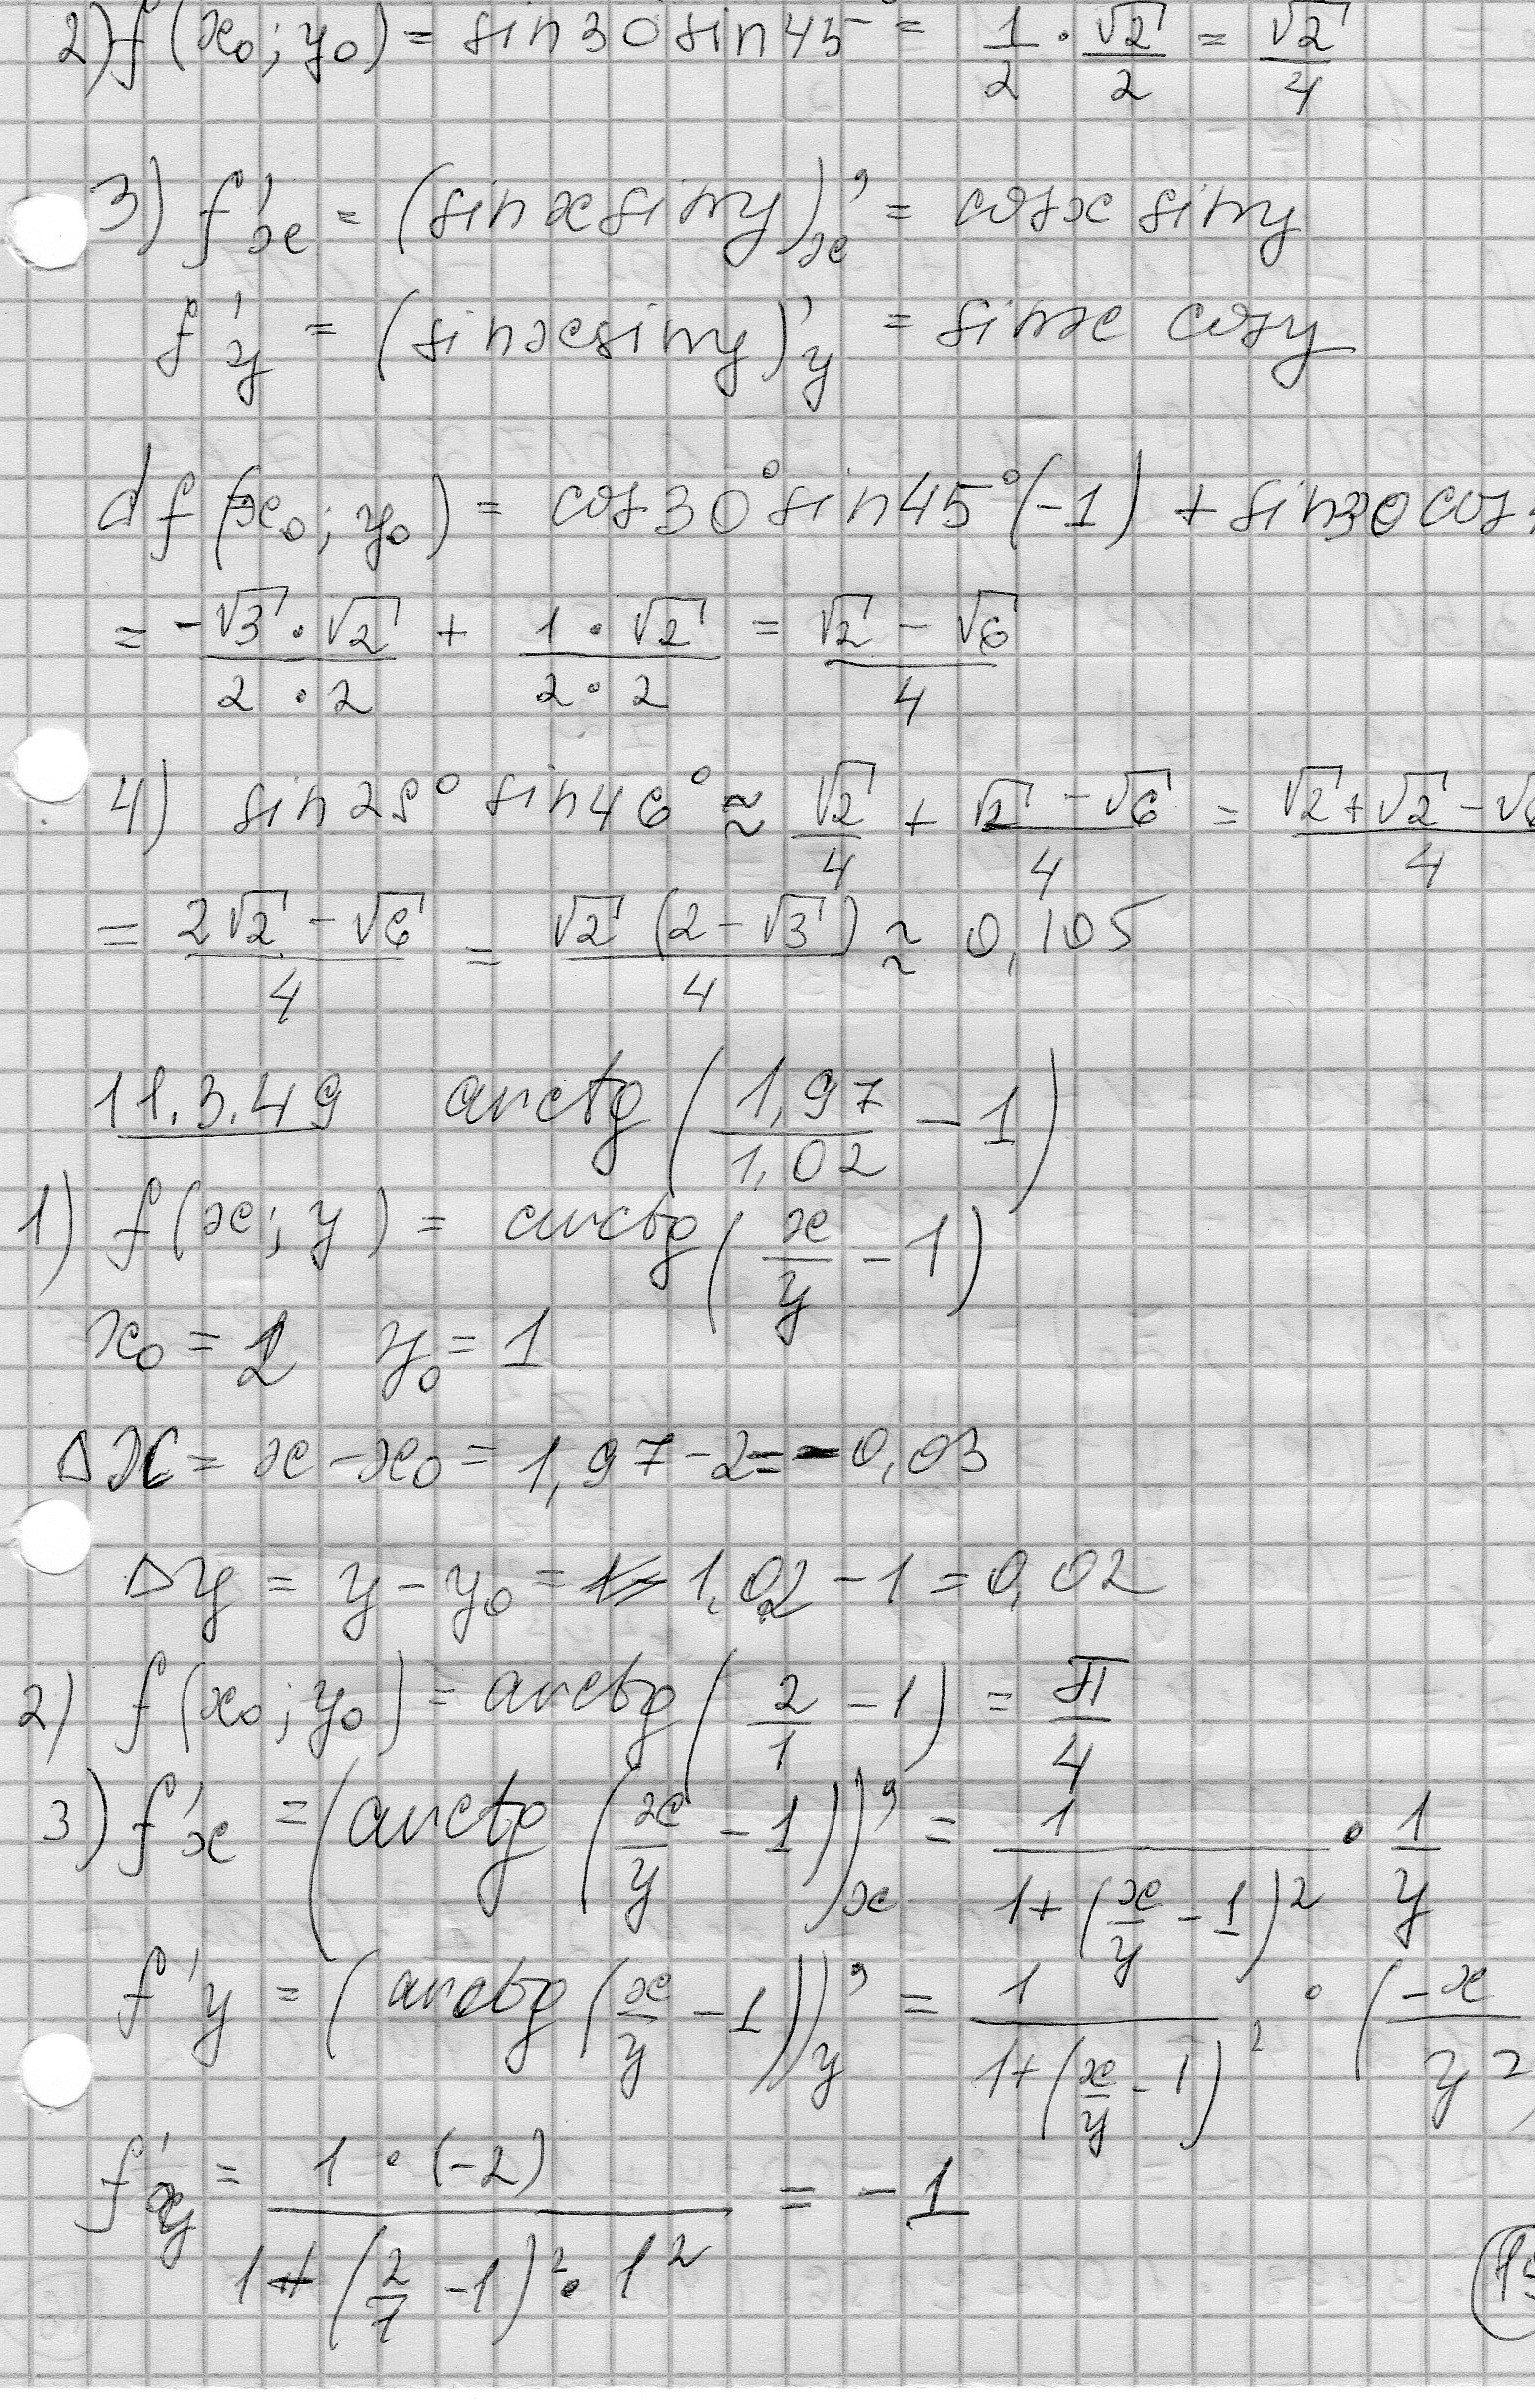 2) f(x₀; y₀) = sin30 sin45° = 1/2 · √2/2 = √2/4
3) f'x = (sin x sin y)'x = cos x sin y
f'y = (sin x sin y)'y = sin x cos y
df(x₀; y₀) = cos30° sin45°(-1) + sin30 cos
= -√3 · √2 / 2 · 2 + 1 · √2 / 2 · 2 = √2 - √6 / 4
4) sin28° sin46° ≈ √2/4 + √2 - √6 / 4 = √2 + √2 - √6 / 4
= 2√2 - √6 / 4 = √2 (2 - √3) / 4 ≈ 0,105
11.3.49 arctg (1,97/1,02 - 1)
1) f(x; y) = arctg (x/y - 1)
x₀ = 2 y₀ = 1
Δx = x - x₀ = 1,97 - 2 = -0,03
Δy = y - y₀ = 1,02 - 1 = 0,02
2) f(x₀; y₀) = arctg (2/1 - 1) = π/4
3) f'x = (arctg (x/y - 1))'x = 1 / 1+(x/y - 1)² · 1/y
f'y = (arctg (x/y - 1))'y = 1 / 1+(x/y - 1)² · (-x / y²)
f'y = 1 · (-2) / 1 + (2/1 - 1)² · 1² = -1